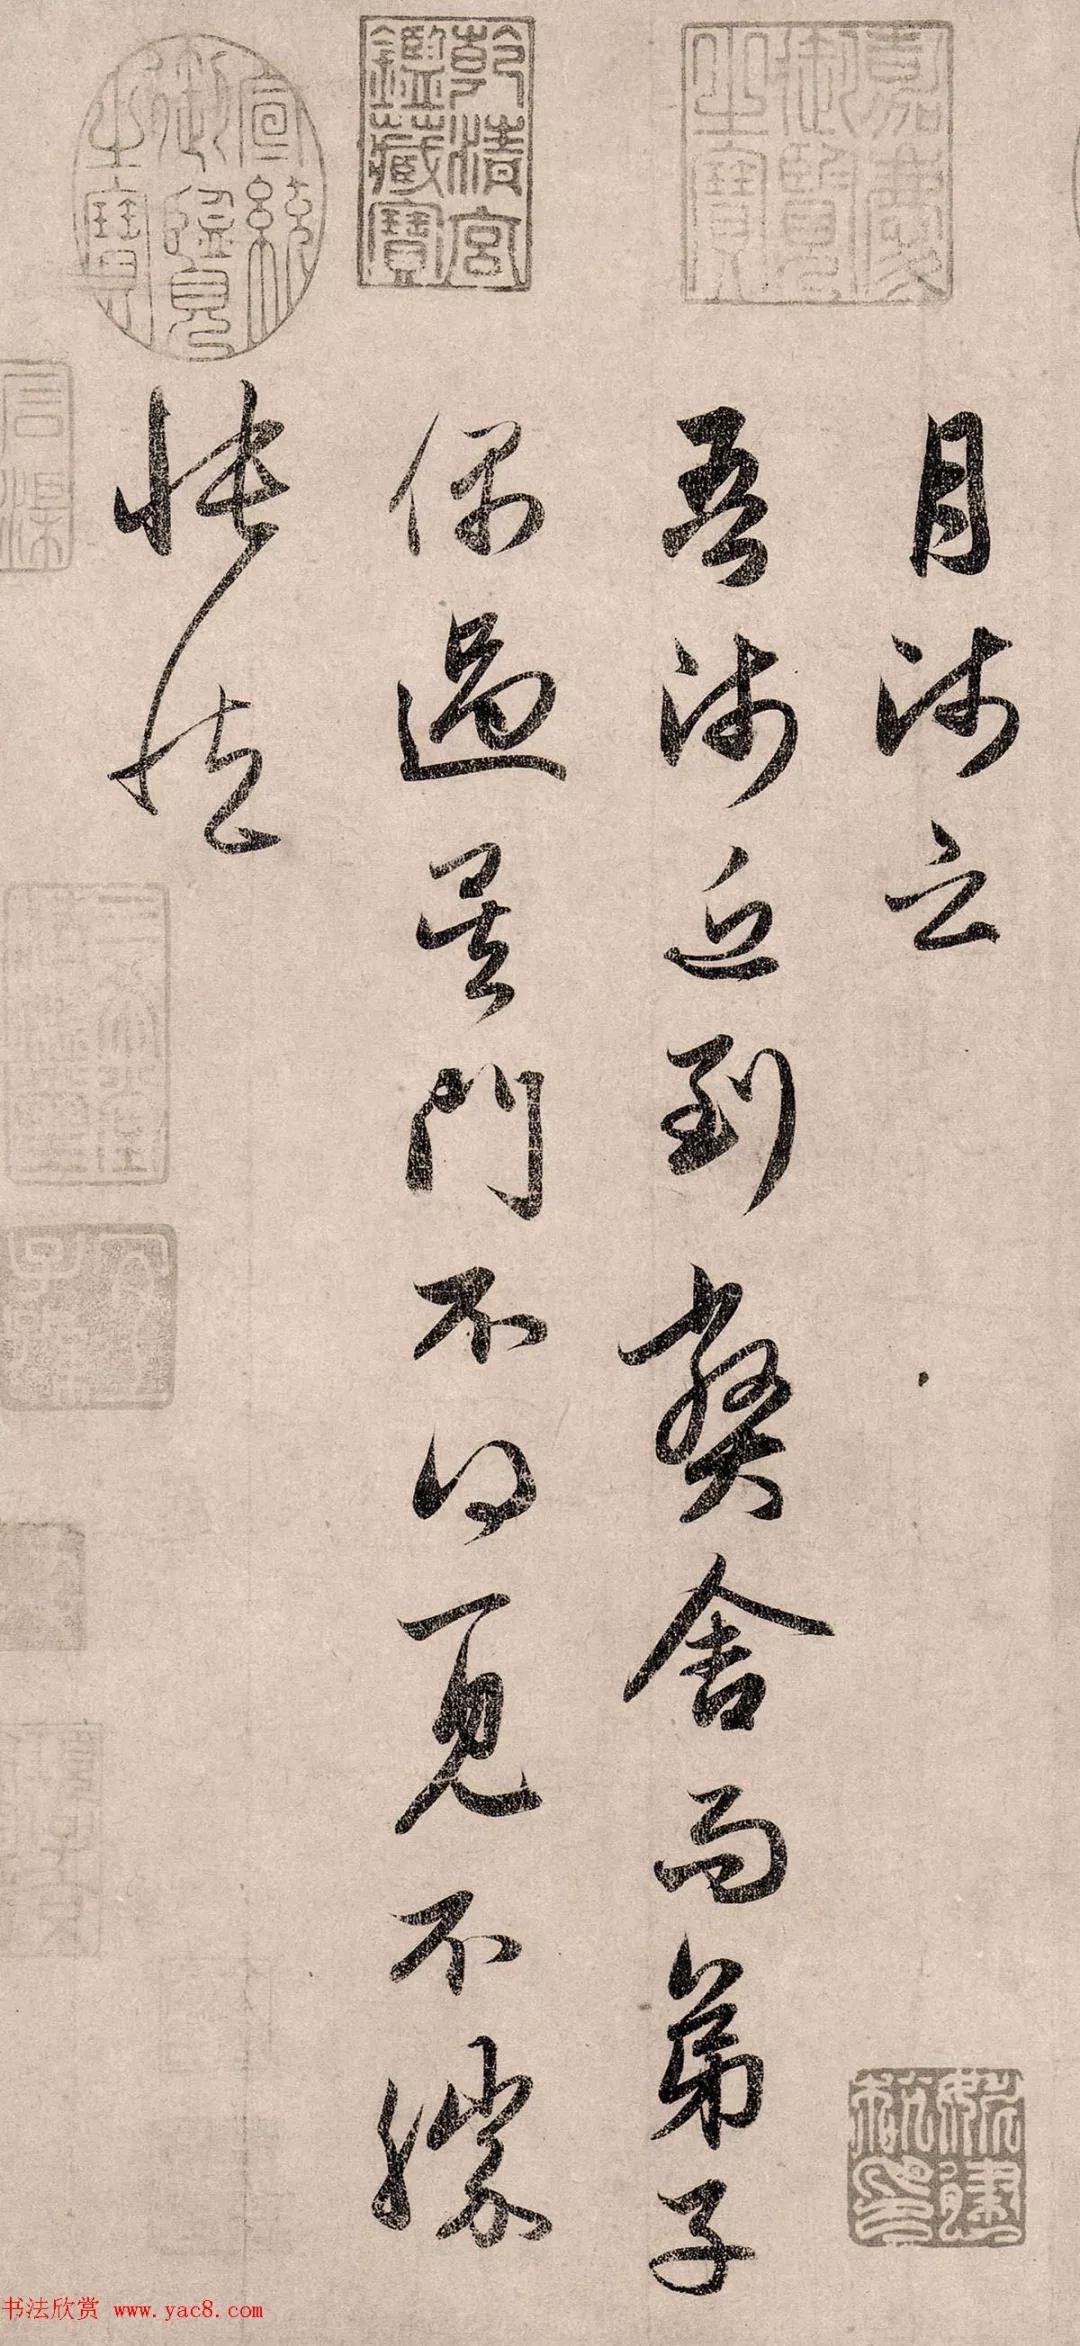 嘉慶御覽之寶
乾清宮鑑藏寶
宣統御覽之寶
月師云
吾師近到弊舍而弟子
偶過吳門不得見不勝
悵悵
书法欣赏 www.yac8.com